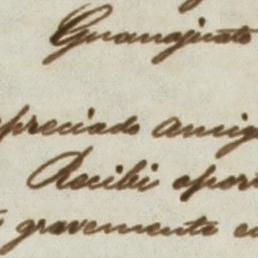 Guanajuato
preciado amig
Recibi oport
gravemente e